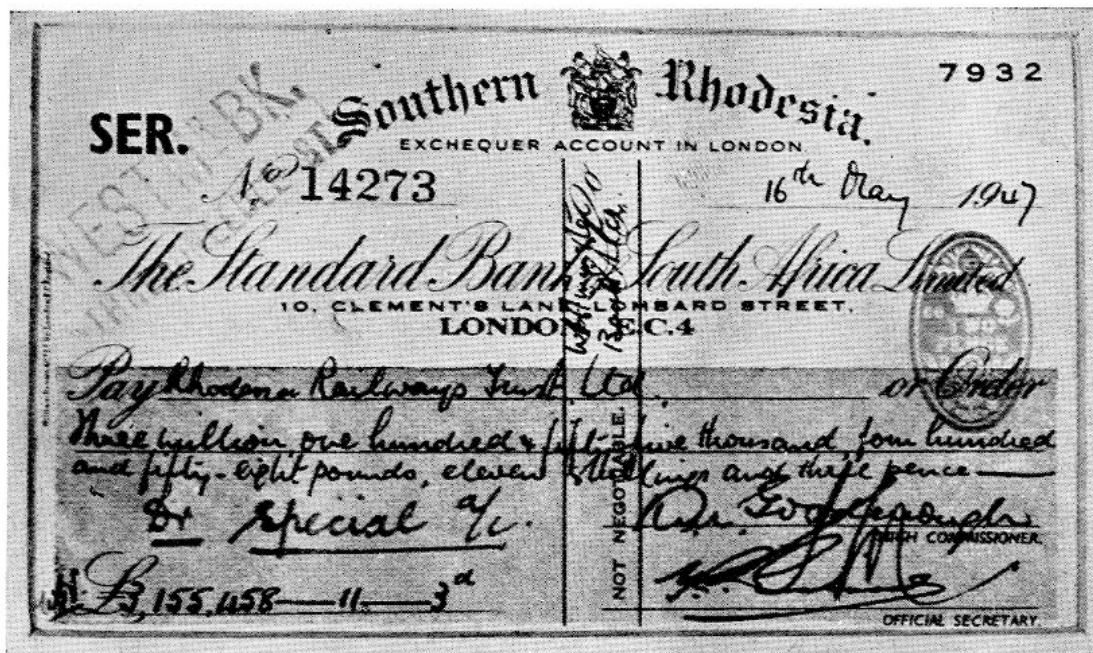 7932
Southern Rhodesia.
SER.
EXCHEQUER ACCOUNT IN LONDON
No 14273
16th May 1947
The Standard Bank of South Africa Limited
10, CLEMENT'S LANE, LOMBARD STREET,
LONDON, E.C.4
Pay Rhodesia Railways Trust Ltd. or Order
Three million one hundred & fifty-five thousand, four hundred
and fifty-eight pounds, eleven shillings and three pence
Dr Special a/c.
HIGH COMMISSIONER.
£3,155,458—11—3d
OFFICIAL SECRETARY.
NOT NEGOTIABLE.
WEST M. BK.